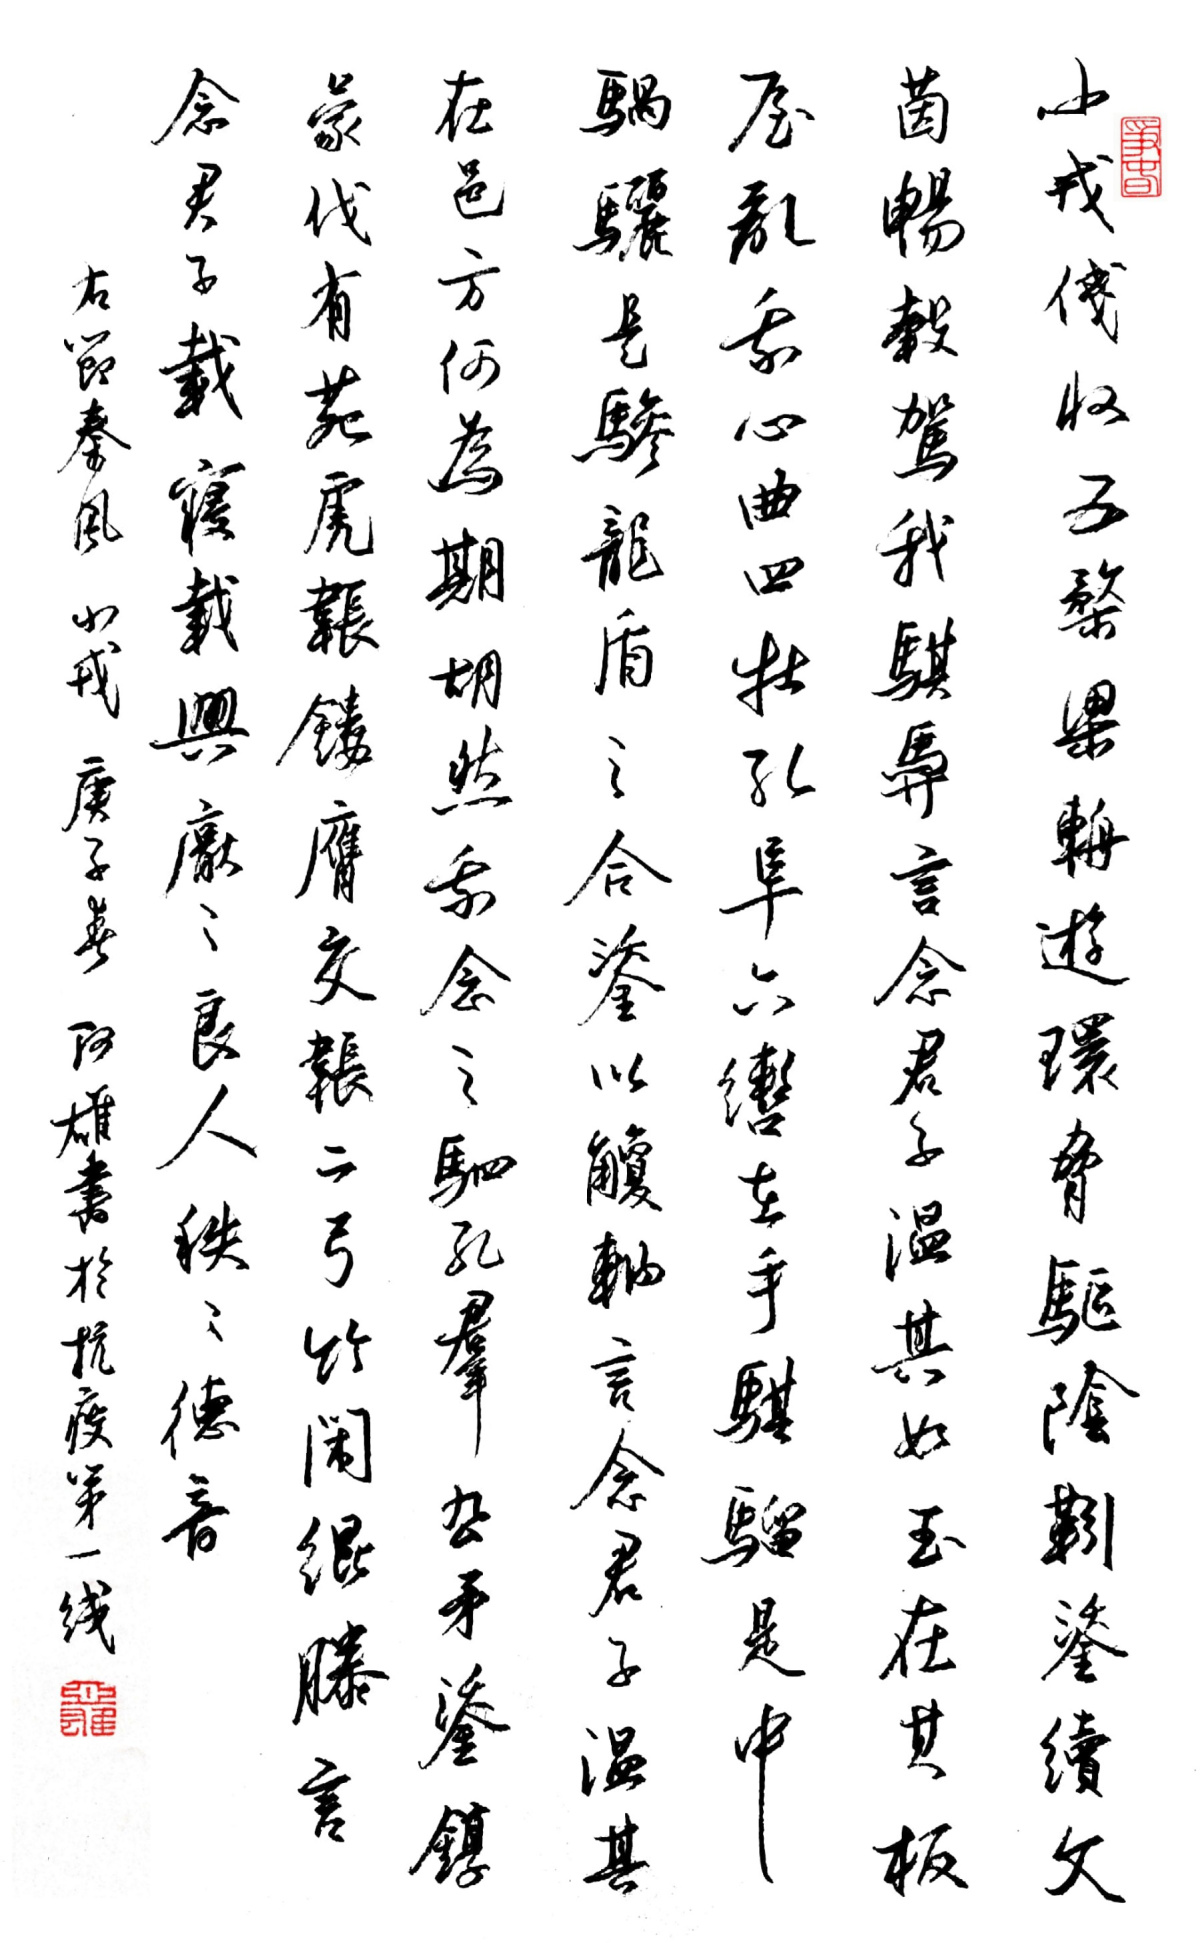 小戎俴收五楘梁輈遊環脅驅陰靷鋈續文
茵暢轂駕我騏馵言念君子溫其如玉在其板
屋亂我心曲四牡孔阜六轡在手騏騮是中
騧驪是驂龍盾之合鋈以觼軜言念君子溫其
在邑方何為期胡然我念之駟孔群厹矛鋈錞
蒙伐有苑虎韔鏤膺交韔二弓竹閉緄縢言
念君子載寢載興厭〻良人秩〻德音
右節秦風 小戎 庚子春 阿雄書於抗疫第一线